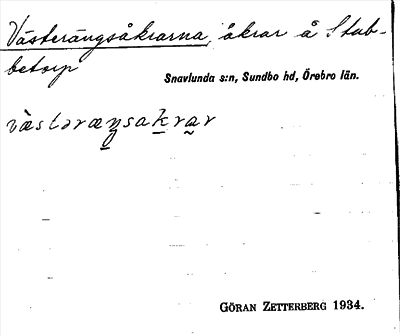 Västerängsåkrarna, åkrar å Stub-
betorp
Snavlunda s:n, Sundbo hd, Örebro län.
vàstəræŋsakrar
GÖRAN ZETTERBERG 1934.